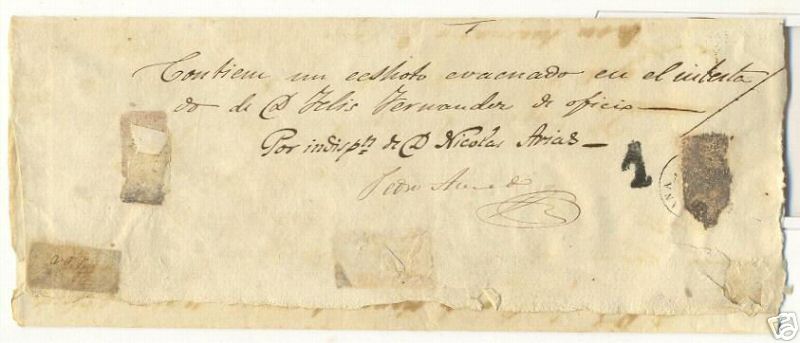 Contiene un exhorto evacuado en el intesta
do de D Felis Fernandez de oficio
Por indispn. de D Nicolas Arias
Pedro
1